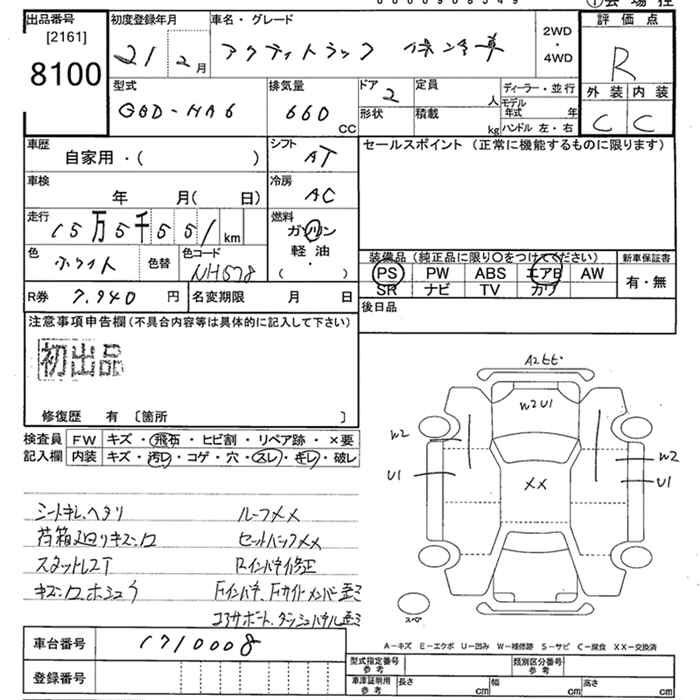 0000908549
①会場控
出品番号 初度登録年月 車名・グレード 評価点
[2161] 21 2月 アクティトラック 保冷車 2WD・4WD
8100 R
型式 排気量 ドア 定員 ディーラー・並行 外装 内装
GBD-HA6 660 CC 2 人 モデル年式 年 C C
形状 積載 kg ハンドル 左・右
車歴 シフト セールスポイント (正常に機能するものに限ります)
自家用・( ) AT
車検 冷房
年 月( 日) AC
走行 燃料
15万5千551km ガソリン
軽油
・
( )
色 色替 色コード
ホワイト NH578
装備品 (純正品に限り○をつけてください) 新車保証書
PS PW ABS エアB AW 有・無
SR ナビ TV カワ
R券 7,940 円 名変期限 月 日
後日品
注意事項申告欄(不具合内容等は具体的に記入して下さい)
初出品
修復歴 有 〔箇所 〕
検査員 FW キズ・飛石・ヒビ割・リペア跡・×要
記入欄 内装 キズ・汚レ・コゲ・穴・スレ・キレ・破レ
シートキレ、ヘタリ ルーフXX
荷箱廻りキズ、ロ セットバックXX
スタットレスT Rインパネ修正
Fインパネ、Fサイドメンバー歪ミ
コアサポート、ダッシュパネル歪ミ
W2U1
W2
U1
XX
W2
U1
スペア
車台番号 1710008
登録番号
A-キズ E-エクボ U-凹み W-補修跡 S-サビ C-腐食 XX-交換済
型式指定番号 参考 類別区分番号 参考
車庫証明用 参考 長さ cm 幅 cm 高さ cm